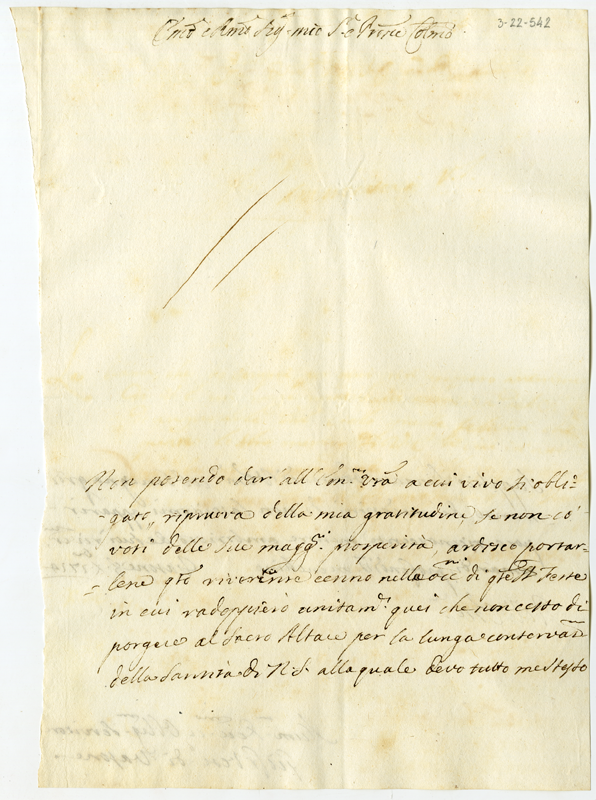 3-22-542
Em.o e Rmo Sig.r mio S.r e Prne Colmo
Non potendo dar' all' Em.za Vra a cui vivo sì obli=
gato, ripruova della mia gratitudine, se non có
voti delle sue magg.ri prosperità, ardisco portar=
=lene qto riverente cenno nelle occ.ni di qte Ste Feste
in cui radoppierò unitam.te quei che non cesso di
porgere al Sacro Altare per la lunga conservaz.ne
della Santità di N. S. alla quale devo tutto me stesso